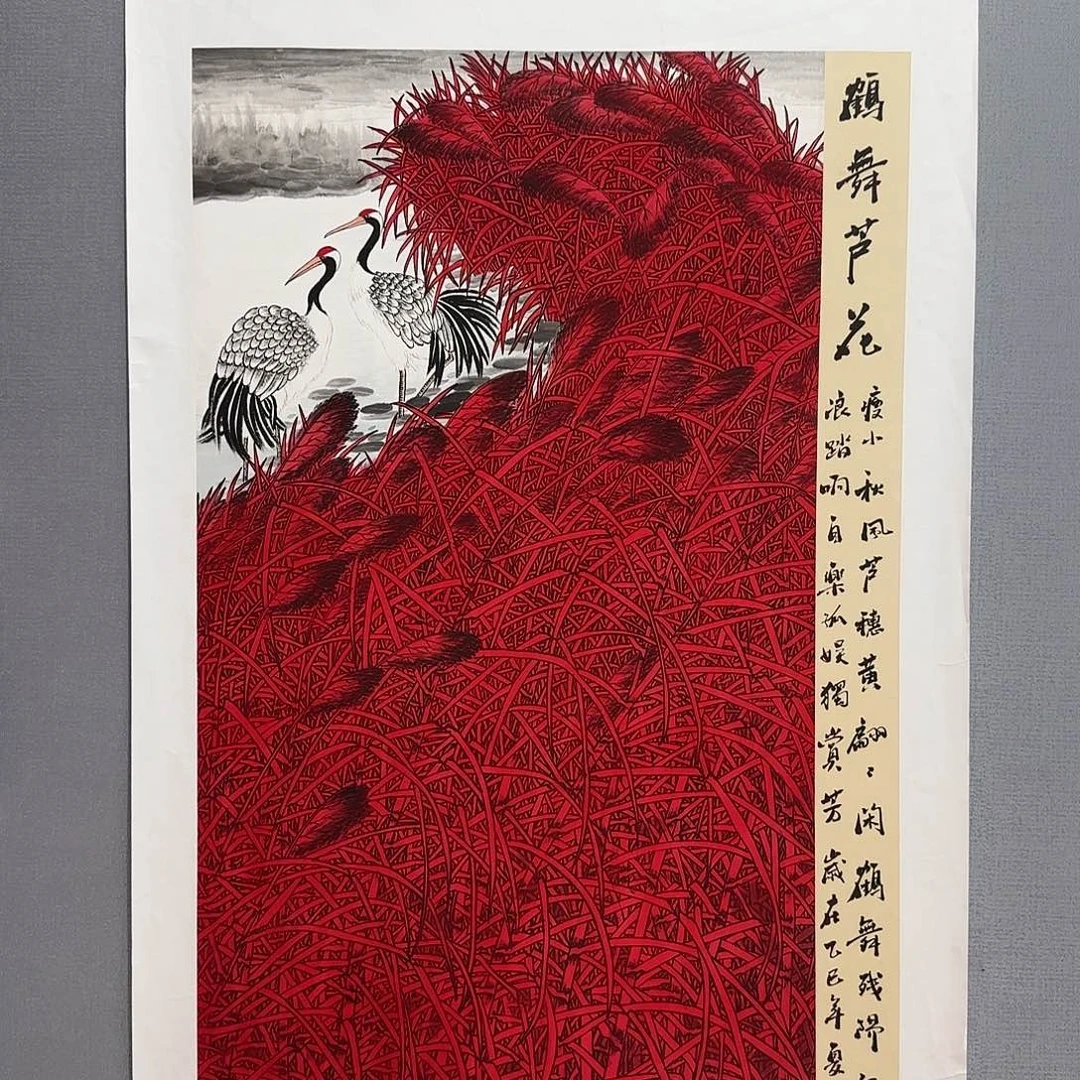 鶴舞芦花
瘦小秋風芦穗黃翩〻闲鶴舞残陽
浪踏响自樂孤娱獨賞芳 歲在乙巳年夏